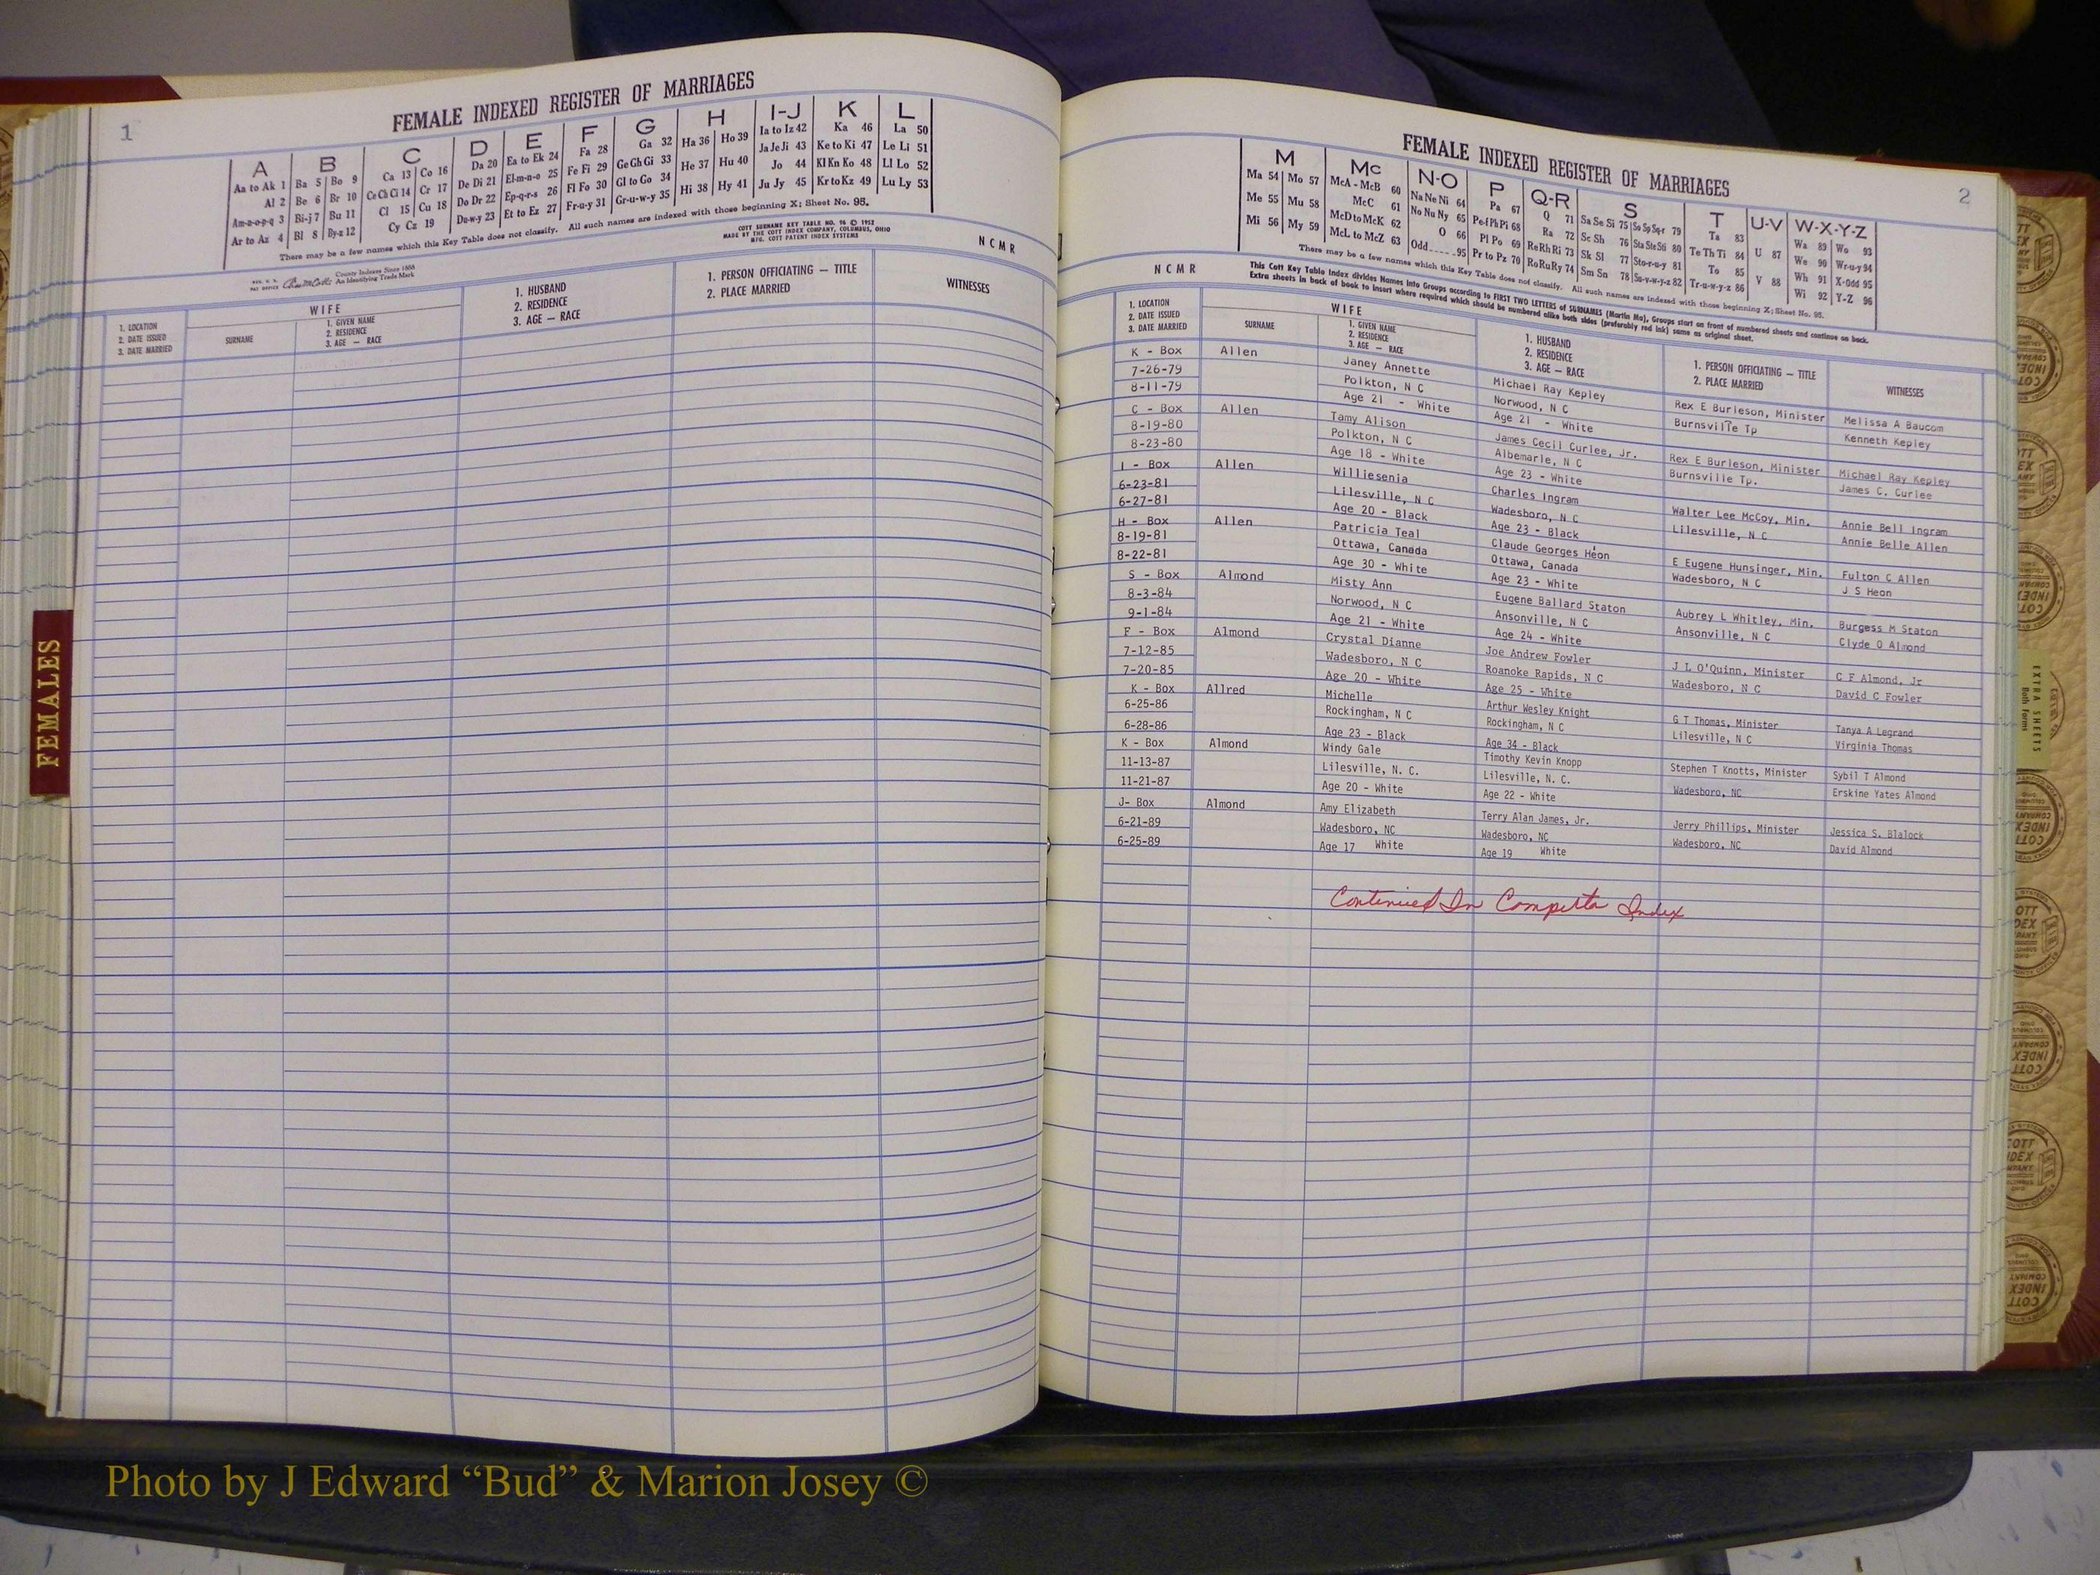 1
FEMALE INDEXED REGISTER OF MARRIAGES
A B C D E F G H I-J K L
Aa to Ak 1 Ba 5 Bo 9 Ca 13 Co 16 Da 20 Ea to Ek 24 Fa 28 Ga 32 Ha 36 Ho 39 Ia to Iz 42 Ka 46 La 50
Al 2 Be 6 Br 10 Ce Ch Ci 14 Cr 17 De Di 21 El-m-n-o 25 Fe Fi 29 Ge Gh Gi 33 He 37 Hu 40 Ja Je Ji 43 Ke to Ki 47 Le Li 51
Am-n-o-p-q 3 Bi-j 7 Bu 11 Cl 15 Cu 18 Do Dr 22 Ep-q-r-s 26 Fl Fo 30 Gl to Go 34 Hi 38 Hy 41 Jo 44 Kl Kn Ko 48 Ll Lo 52
Ar to Az 4 Bl 8 By-z 12 Cy Cz 19 Du-w-y 23 Et to Ez 27 Fr-u-y 31 Gr-u-w-y 35 Ju Jy 45 Kr to Kz 49 Lu Ly 53
There may be a few names which this Key Table does not classify. All such names are indexed with those beginning X; Sheet No. 95.
COTT SURNAME KEY TABLE NO. 96 © 1952
MADE BY THE COTT INDEX COMPANY, COLUMBUS, OHIO
MFG. COTT PATENT INDEX SYSTEMS
N C M R
County Indexes Since 1888
An Identifying Trade Mark
1. LOCATION
2. DATE ISSUED
3. DATE MARRIED
WIFE
SURNAME
1. GIVEN NAME
2. RESIDENCE
3. AGE — RACE
1. HUSBAND
2. RESIDENCE
3. AGE — RACE
1. PERSON OFFICIATING — TITLE
2. PLACE MARRIED
WITNESSES
FEMALES
2
FEMALE INDEXED REGISTER OF MARRIAGES
M Mc N-O P Q-R S T U-V W-X-Y-Z
Ma 54 Mo 57 McA - McB 60 Na Ne Ni 64 Pa 67 Q 71 Sa Se Si 75 So Sp Sq-r 79 Ta 83 U 87 Wa 89 Wo 93
Me 55 Mu 58 McC 61 No Nu Ny 65 Pe-f Ph Pi 68 Ra 72 Sc Sh 76 Sta Ste Sti 80 Te Th Ti 84 V 88 We 90 Wr-u-y 94
Mi 56 My 59 McD to McK 62 O 66 Pl Po 69 Re Rh Ri 73 Sk Sl 77 Sto-r-u-y 81 To 85 Wh 91 X-Odd 95
McL to McZ 63 Odd 95 Pr to Pz 70 Ro Ru Ry 74 Sm Sn 78 Su-v-w-y-z 82 Tr-u-w-y-z 86 Wi 92 Y-Z 96
There may be a few names which this Key Table does not classify. All such names are indexed with those beginning X; Sheet No. 95.
N C M R
This Cott Key Table Index divides Names into Groups according to FIRST TWO LETTERS of SURNAMES (Martin Ma), Groups start on front of numbered sheets and continue on back.
Extra sheets in back of book to insert where required which should be numbered alike both sides (preferably red ink) same as original sheet.
1. LOCATION
2. DATE ISSUED
3. DATE MARRIED
WIFE
SURNAME
1. GIVEN NAME
2. RESIDENCE
3. AGE — RACE
1. HUSBAND
2. RESIDENCE
3. AGE — RACE
1. PERSON OFFICIATING — TITLE
2. PLACE MARRIED
WITNESSES
K - Box Allen Janey Annette Michael Ray Kepley Rex E Burleson, Minister Melissa A Baucom
7-26-79 Polkton, N C Norwood, N C Burnsville Tp Kenneth Kepley
8-11-79 Age 21 - White Age 21 - White
C - Box Allen Tamy Alison James Cecil Curlee, Jr. Rex E Burleson, Minister Michael Ray Kepley
8-19-80 Polkton, N C Albemarle, N C Burnsville Tp. James C. Curlee
8-23-80 Age 18 - White Age 23 - White
I - Box Allen Williesenia Charles Ingram Walter Lee McCoy, Min. Annie Bell Ingram
6-23-81 Lilesville, N C Wadesboro, N C Lilesville, N C Annie Belle Allen
6-27-81 Age 20 - Black Age 23 - Black
H - Box Allen Patricia Teal Claude Georges Héon E Eugene Hunsinger, Min. Fulton C Allen
8-19-81 Ottawa, Canada Ottawa, Canada Wadesboro, N C J S Heon
8-22-81 Age 30 - White Age 23 - White
S - Box Almond Misty Ann Eugene Ballard Staton Aubrey L Whitley, Min. Burgess M Staton
8-3-84 Norwood, N C Ansonville, N C Ansonville, N C Clyde O Almond
9-1-84 Age 21 - White Age 24 - White
F - Box Almond Crystal Dianne Joe Andrew Fowler J L O'Quinn, Minister C F Almond, Jr
7-12-85 Wadesboro, N C Roanoke Rapids, N C Wadesboro, N C David C Fowler
7-20-85 Age 20 - White Age 25 - White
K - Box Allred Michelle Arthur Wesley Knight G T Thomas, Minister Tanya A Legrand
6-25-86 Rockingham, N C Rockingham, N C Lilesville, N C Virginia Thomas
6-28-86 Age 23 - Black Age 34 - Black
K - Box Almond Windy Gale Timothy Kevin Knopp Stephen T Knotts, Minister Sybil T Almond
11-13-87 Lilesville, N. C. Lilesville, N. C. Wadesboro, NC Erskine Yates Almond
11-21-87 Age 20 - White Age 22 - White
J- Box Almond Amy Elizabeth Terry Alan James, Jr. Jerry Phillips, Minister Jessica S. Blalock
6-21-89 Wadesboro, NC Wadesboro, NC Wadesboro, NC David Almond
6-25-89 Age 17 White Age 19 White
Continued In Computer Index
EXTRA SHEETS
Both Forms
Photo by J Edward “Bud” & Marion Josey ©